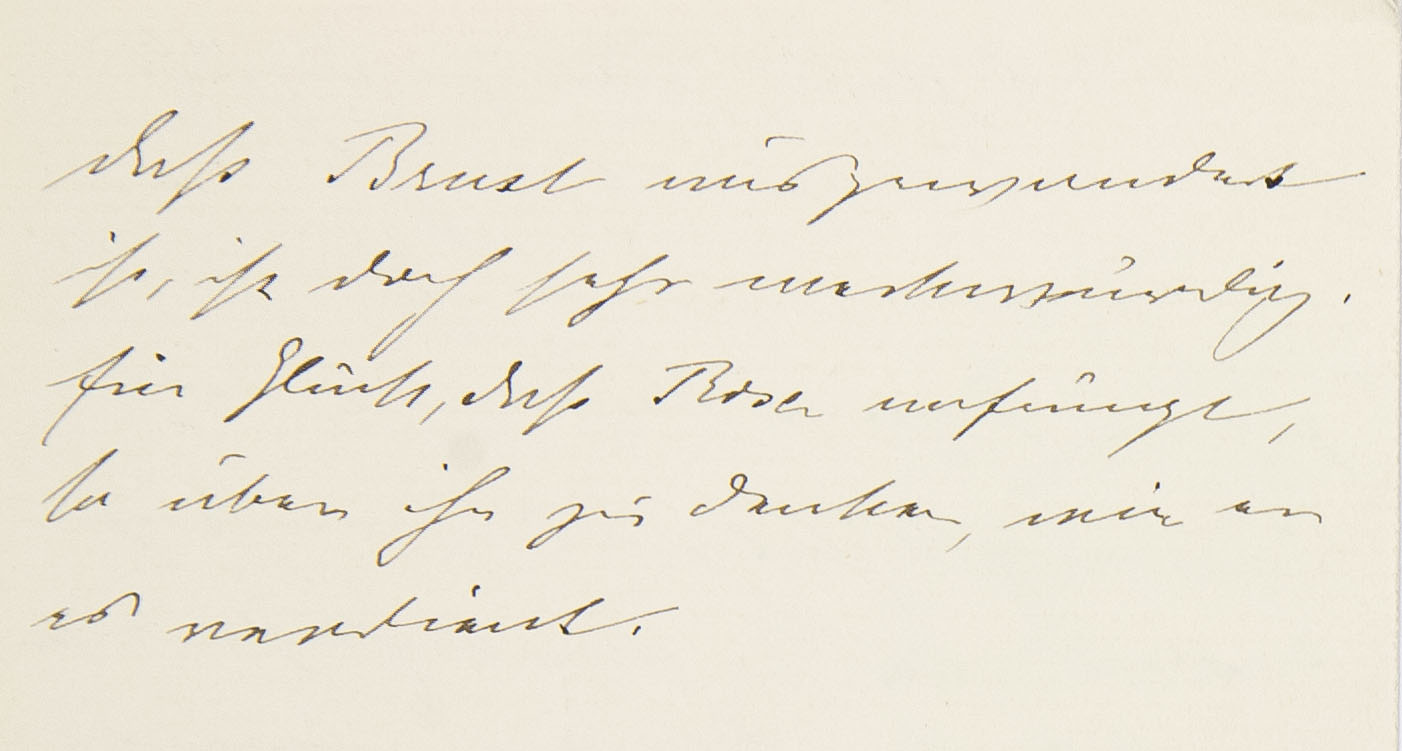 daß Brust ausgewandert
ist, ist doch sehr merkwürdig.
Ein Glück, daß Rosa anfängt,
so über ihn zu denken, wie er
es verdient.